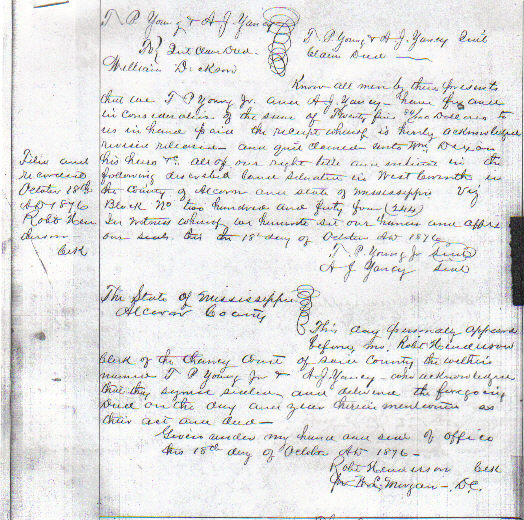 T. P. Young & A J. Yancy
To Quit Claim Deed.
William Dickson
T P Young & A J. Yancy Quit
Claim Deed
Know all men by these presents
that we T P Young Jr. and A J. Yancy have for and
in consideration of the sum of Twenty five Dollars to
us in hand paid the receipt whereof is hereby acknowledged
remise released and quit claimed unto Wm. Dixon
his heirs all of our right title and interest in the
following described land situated in West Corinth in
the County of Alcorn and state of Mississippi Viz
Block No two hundred and forty four (244)
In witness whereof we hereunto set our hands and affix
our seals this the 18 day of October AD 1876.
T. P. Young Jr Seal
A J Yancy Seal
Filed and
recorded
October 18th
AD 1876
Robt Hen
derson
Clk
The State of Mississippi
Alcorn County
This day personally appeared
before me, Robt Henderson
Clerk of the Chancy Court of said County the within
named T P Young Jr & A J Yancy who acknowledged
that they signed sealed and delivered the foregoing
Deed on the day and year therein mentioned as
their act and deed
Given under my hand and seal of office
this 18th day of October AD 1876
Robt Henderson Clk
Morgan D.C.